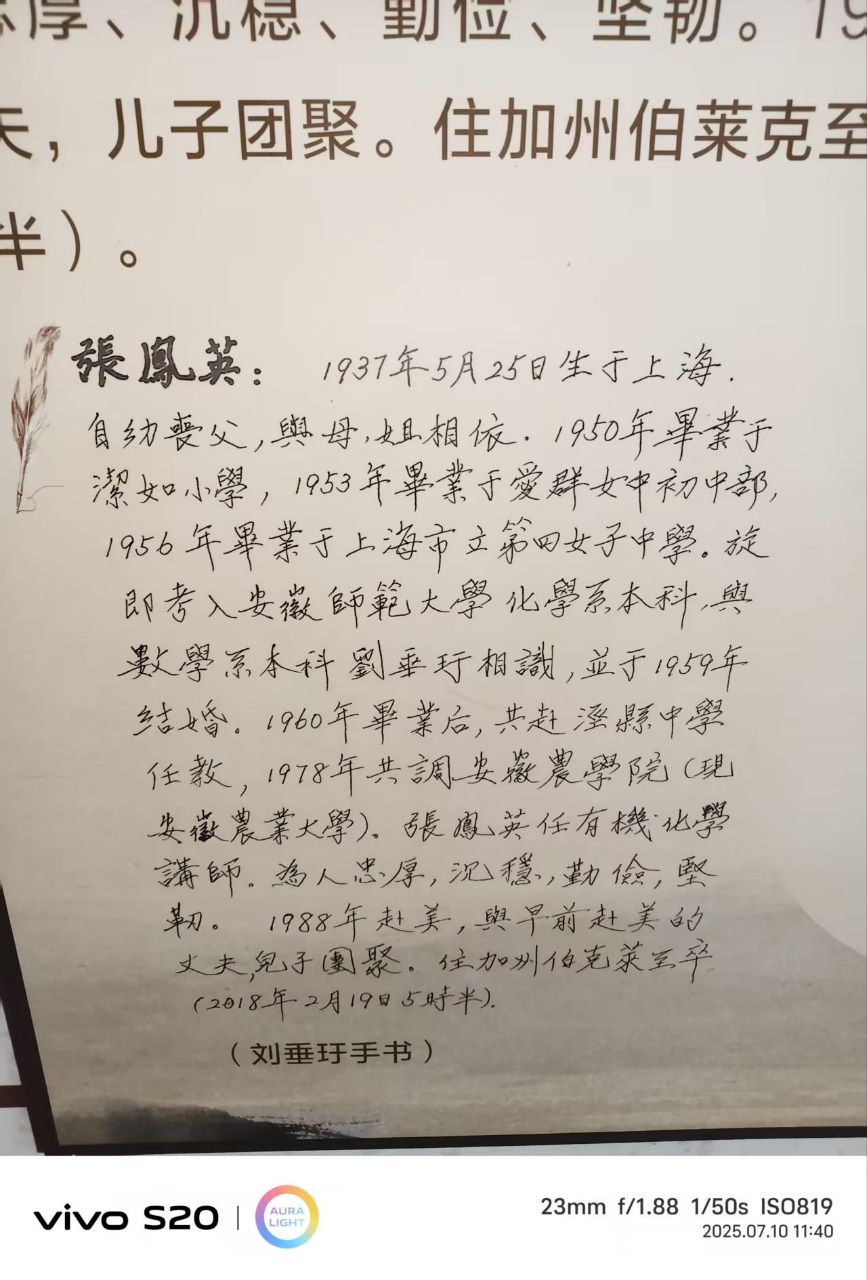 忠厚、沉稳、勤俭、坚韧。19
夫，儿子团聚。住加州伯莱克至
半）。
張鳳英： 1937年5月25日生于上海.
自幼喪父,與母,姐相依. 1950年畢業于
潔如小學, 1953年畢業于愛群女中初中部,
1956年畢業于上海市立第四女子中學。旋
即考入安徽師範大學化學系本科,與
數學系本科劉垂玗相識,並于1959年
结婚。1960年畢業后,共赴涇縣中學
任教, 1978年共調安徽農學院(現
安徽農業大學)。張鳳英任有機化學
講師。為人忠厚,沉穩,勤儉,堅
韌。 1988年赴美,與早前赴美的
丈夫,兒子團聚。住加州伯克萊至卒
(2018年2月19日5時半).
（刘垂玗手书）
vivo S20
AURA
LIGHT
23mm f/1.88 1/50s ISO819
2025.07.10 11:40